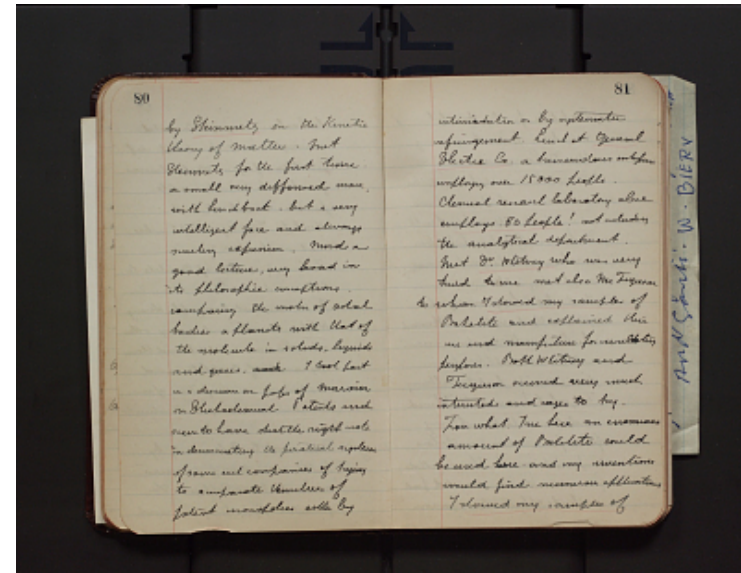 80
by Steinmetz on the Kinetic
theory of matter. Met
Steinmetz for the first time
a small very difformed man,
with hunchback. but a very
intelligent face and always
smiling expression. Made a
good lecture, very broad in
its philosophic conceptions.
comparing the motion of astral
bodies & planets with that of
the molecule in solids, liquids
and gases. I took part
in a discussion on paper of
on Electrochemical Patents and
seem to have struck the right note
in demonstrating the practical
of some companies of trying
to themselves of
patent monopolies either by
81
intimidation or by systematic
infringement. Lunch at General
Electric Co. a tremendous enterprise
employing over 15000 people.
Chemical research laboratory alone
employs 50 people! not including
the analytical department.
Met Dr. Whitney who was very
kind to me met also Mr Ferguson
to whom I showed my samples of
Bakelite and explained their
use and manufacture for
purposes. Both Whitney and
Ferguson seemed very much
interested and eager to try.
From what I see here an enormous
amount of Bakelite could
be used here and my inventions
would find numerous applications
I showed my samples of
W. BIERY